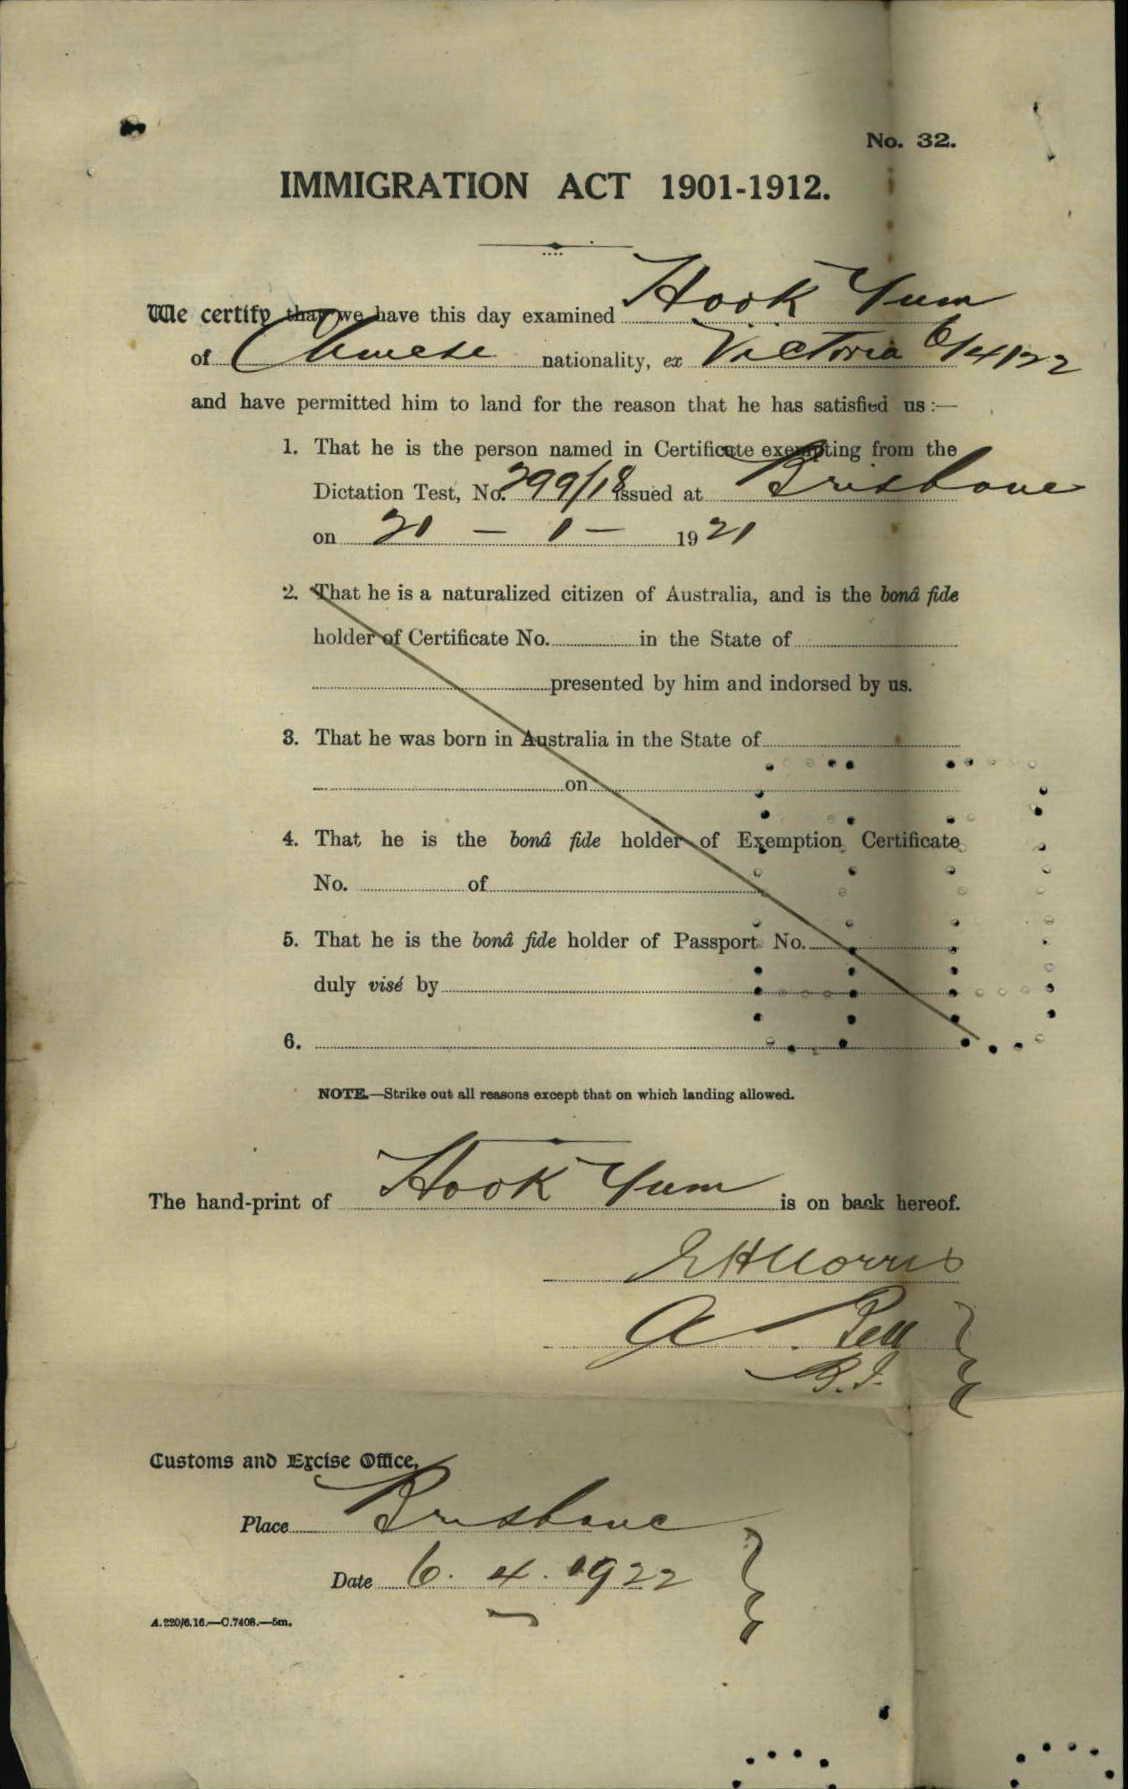 No. 32.
IMMIGRATION ACT 1901-1912.
We certify that we have this day examined Hook Yum
of Chinese nationality, ex Victoria 6/4/22
and have permitted him to land for the reason that he has satisfied us :—
1. That he is the person named in Certificate exempting from the
Dictation Test, No. 299/18 issued at Brisbane
on 21 - 1 - 1921
2. That he is a naturalized citizen of Australia, and is the bonâ fide
holder of Certificate No. in the State of
presented by him and indorsed by us.
3. That he was born in Australia in the State of
on
4. That he is the bonâ fide holder of Exemption Certificate
No. of
5. That he is the bonâ fide holder of Passport No.
duly visé by
6.
NOTE.—Strike out all reasons except that on which landing allowed.
The hand-print of Hook Yum is on back hereof.
Morris
A Bell
B.I.
Customs and Excise Office,
Place Brisbane
Date 6. 4. 1922
A.220/6.16.—C.7408.—5m.